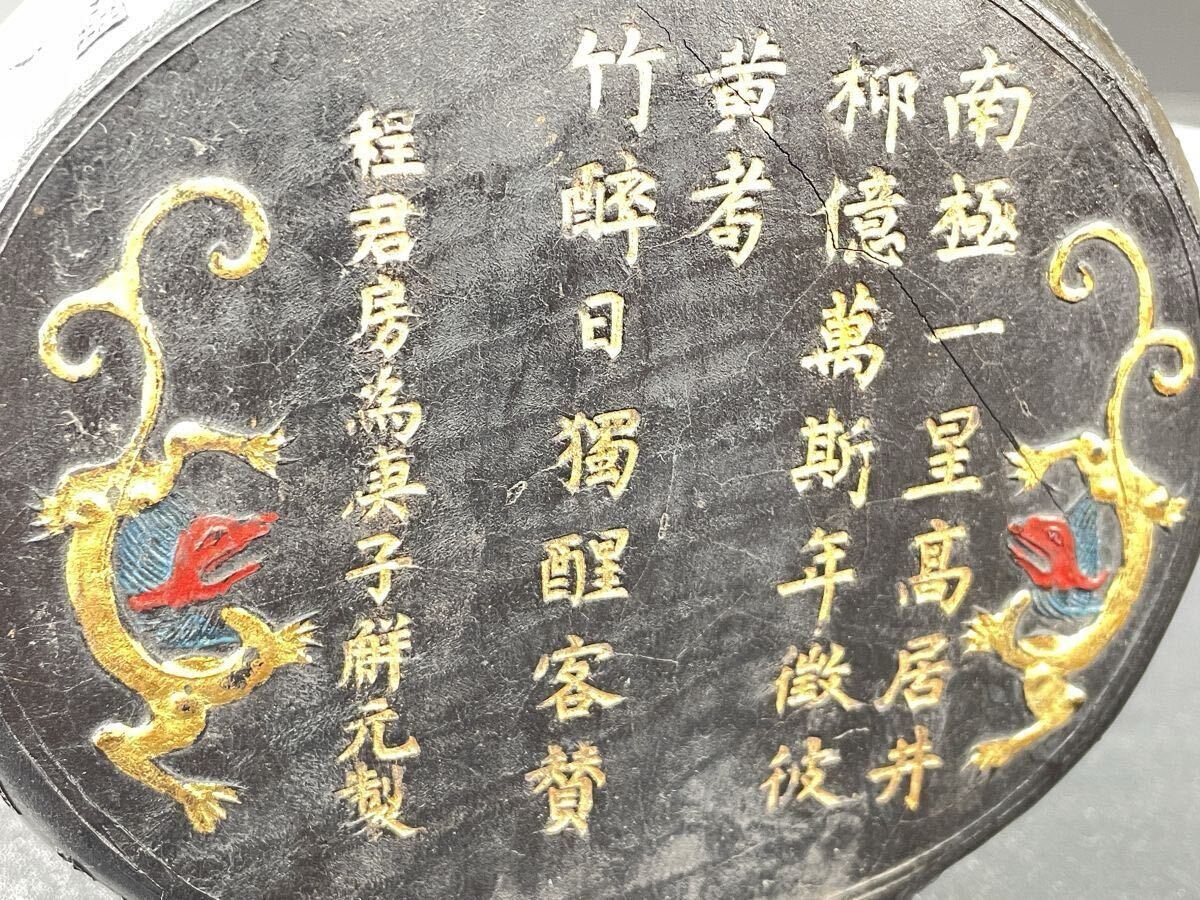 南極一星高居井
柳億萬斯年徵彼
黃耇
竹醉日獨醒客贊
程君房為庚子解元製